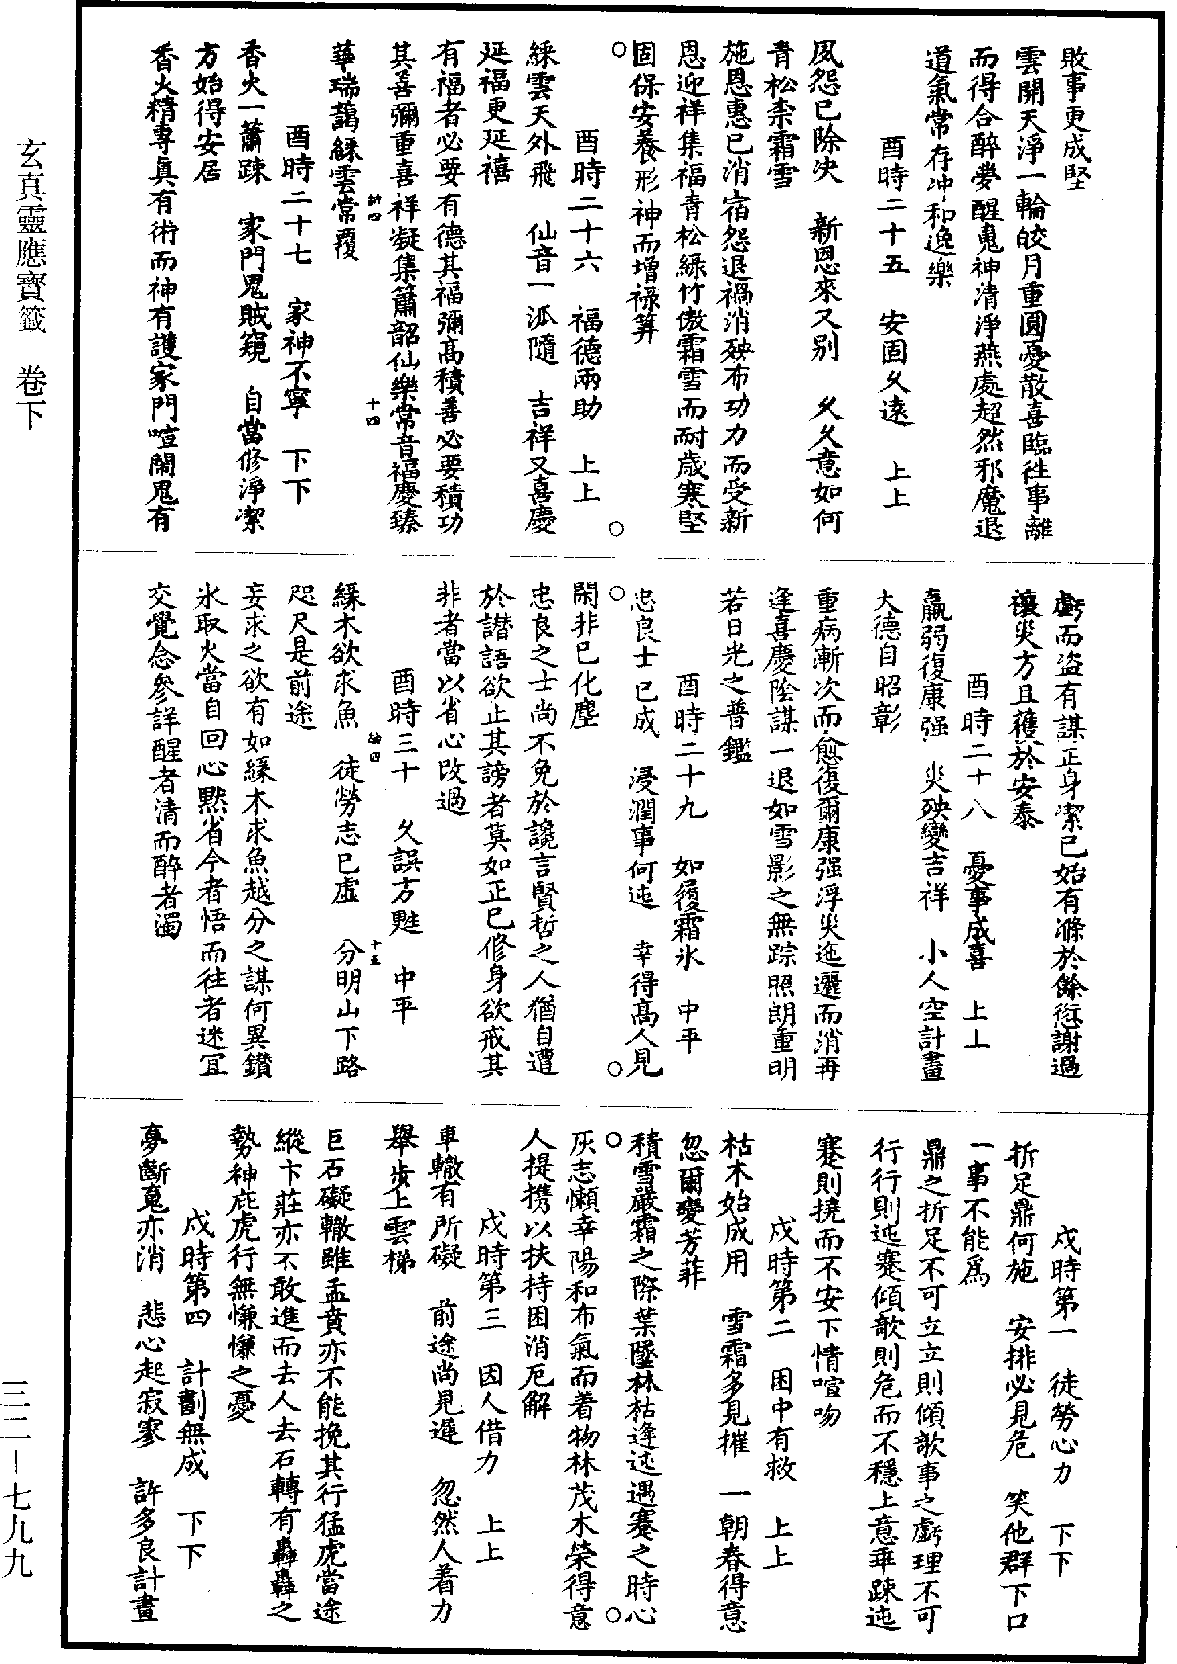 敗事更成堅
雲開天淨一輪皎月重圓憂散喜臨往事離
而得合醉夢醒魂神清淨燕處超然邪魔退
道氣常存冲和逸樂
酉時二十五 安固久遠 上上
夙怨已除決 新恩來又別 久久意如何
青松柰霜雪
施恩惠已消宿怨退禍消殃布功力而受新
恩迎祥集福青松綠竹傲霜雪而耐歲寒堅
固保安養形神而增祿筭
酉時二十六 福德兩助 上上
綵雲天外飛 仙音一派隨 吉祥又喜慶
延福更延禧
有福者必要有德其福彌高積善必要積功
其喜彌重喜祥凝集簫韶仙樂常音福慶臻
華瑞藹綵雲常覆
酉時二十七 家神不寧 下下
香火一蕭疎 家門鬼賊窺 自當修淨潔
方始得安居
香火精專真有術而神有護家門喧鬧鬼有
虧而盜有謀正身潔己始有滌於餘愆謝過
禳災方且獲於安泰
酉時二十八 憂事成喜 上上
羸弱復康强 災殃變吉祥 小人空計畫
大德自昭彰
重病漸次而愈復爾康强浮災迤邐而消再
逢喜慶陰謀一退如雪影之無踪照朗重明
若日光之普鑑
酉時二十九 如履霜氷 中平
忠良士已成 浸潤事何迍 幸得高人見
閑非已化塵
忠良之士尚不免於讒言賢哲之人猶自遭
於譖語欲止其謗者莫如正己修身欲戒其
非者當以省心改過
酉時三十 久誤方甦 中平
緣木欲求魚 徒勞志已虛 分明山下路
咫尺是前途
妄求之欲有如緣木求魚越分之謀何異鑽
氷取火當自回心默省今者悟而往者迷宜
交覺念參詳醒者清而醉者濁
戌時第一 徒勞心力 下下
折足鼎何施 安排必見危 笑他群下口
一事不能爲
鼎之折足不可立立則傾欹事之虧理不可
行行則迍蹇傾欹則危而不穩上意乖踈迍
蹇則撓而不安下情喧吻
戌時第二 困中有救 上上
枯木始成用 雪霜多見摧 一朝春得意
忽爾變芳菲
積雪嚴霜之際葉墜林枯逢迍遇蹇之時心
灰志懶幸陽和布氣而着物林茂木榮得意
人提携以扶持困消厄解
戌時第三 因人借力 上上
車轍有所礙 前途尚見遲 忽然人着力
舉步上雲梯
巨石礙轍雖孟賁亦不能挽其行猛虎當途
縱卞莊亦不敢進而去人去石轉有轟轟之
勢神庇虎行無慊慊之憂
戌時第四 計劃無成 下下
夢斷䰟亦消 悲心起寂寥 許多良計畫
玄真靈應寶籤 卷下
三二—七九九